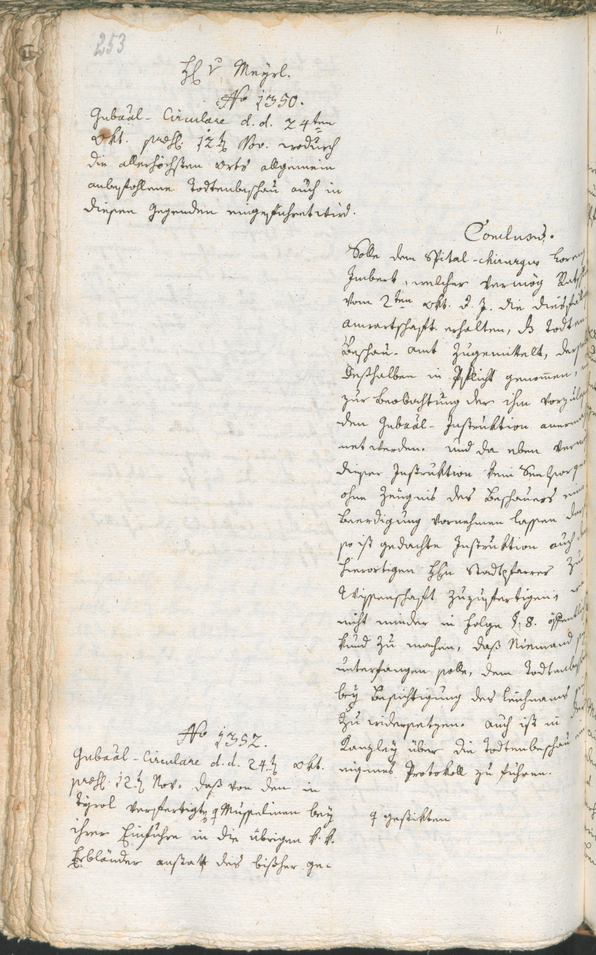 253
H: v Meyrl.
No 1350.
Gubāāl-Circulare d. d. 24ten
Okt. praes. 12t Nov. wodurch
die allerhöchsten Orts allgemein
anbefohlene Todtenbeschau auch in
diesen Gegenden eingeführet wird.
Conclusum.
Solle dem Spital-chirurgus Loren
Imbert, welcher vermög Raths
vom 2ten Okt. d. J. die diesfä
anwartschaft erhalten, das Todten
Beschau-Amt zugemittelt, der
desthalben in Pflicht genommen,
zur beobachtung der ihm vorzu
den Gubāāl-Instruktion
net werden. und da eben verm
dieser Instruktion kein Seelsorge
ohne Zeugnis des Beschauers
Beerdigung vornehmen lassen
so ist gedachte Instruktion auch
hierortigen Hhn Stadtpfarrer zu
Wissenschaft zuzufertigen,
nicht minder in folge §. 8. öffentl
kund zu machen, daß Niemand s
unterfangen solle, dem Todtenbes
bey Besichtigung des Leichnams
zu widersetzen. auch ist in
Kanzley über die Todtenbeschau
eigenes Protokoll zu führen.
No 1352.
Gubāāl-Circulare d. d. 24t Okt.
praes. 12t Nov. daß von den in
Tyrol verfertigten Musselinen bey
ihrer Einfuhre in die übrigen k. k.
Erbländer anstatt des bisher ge-
gestikten